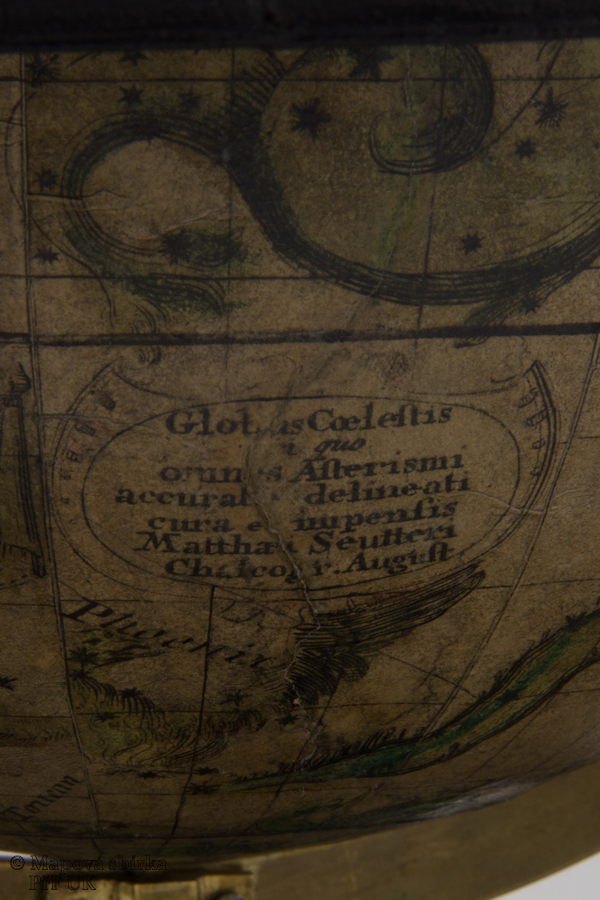 Globus Cœlestis
in quo
omnes Asterismi
accurate delineati
cura et impensis
Matthæi Seutteri
Chalcogr. August.
Phoenix
© Mapová sbírka
PřF UK